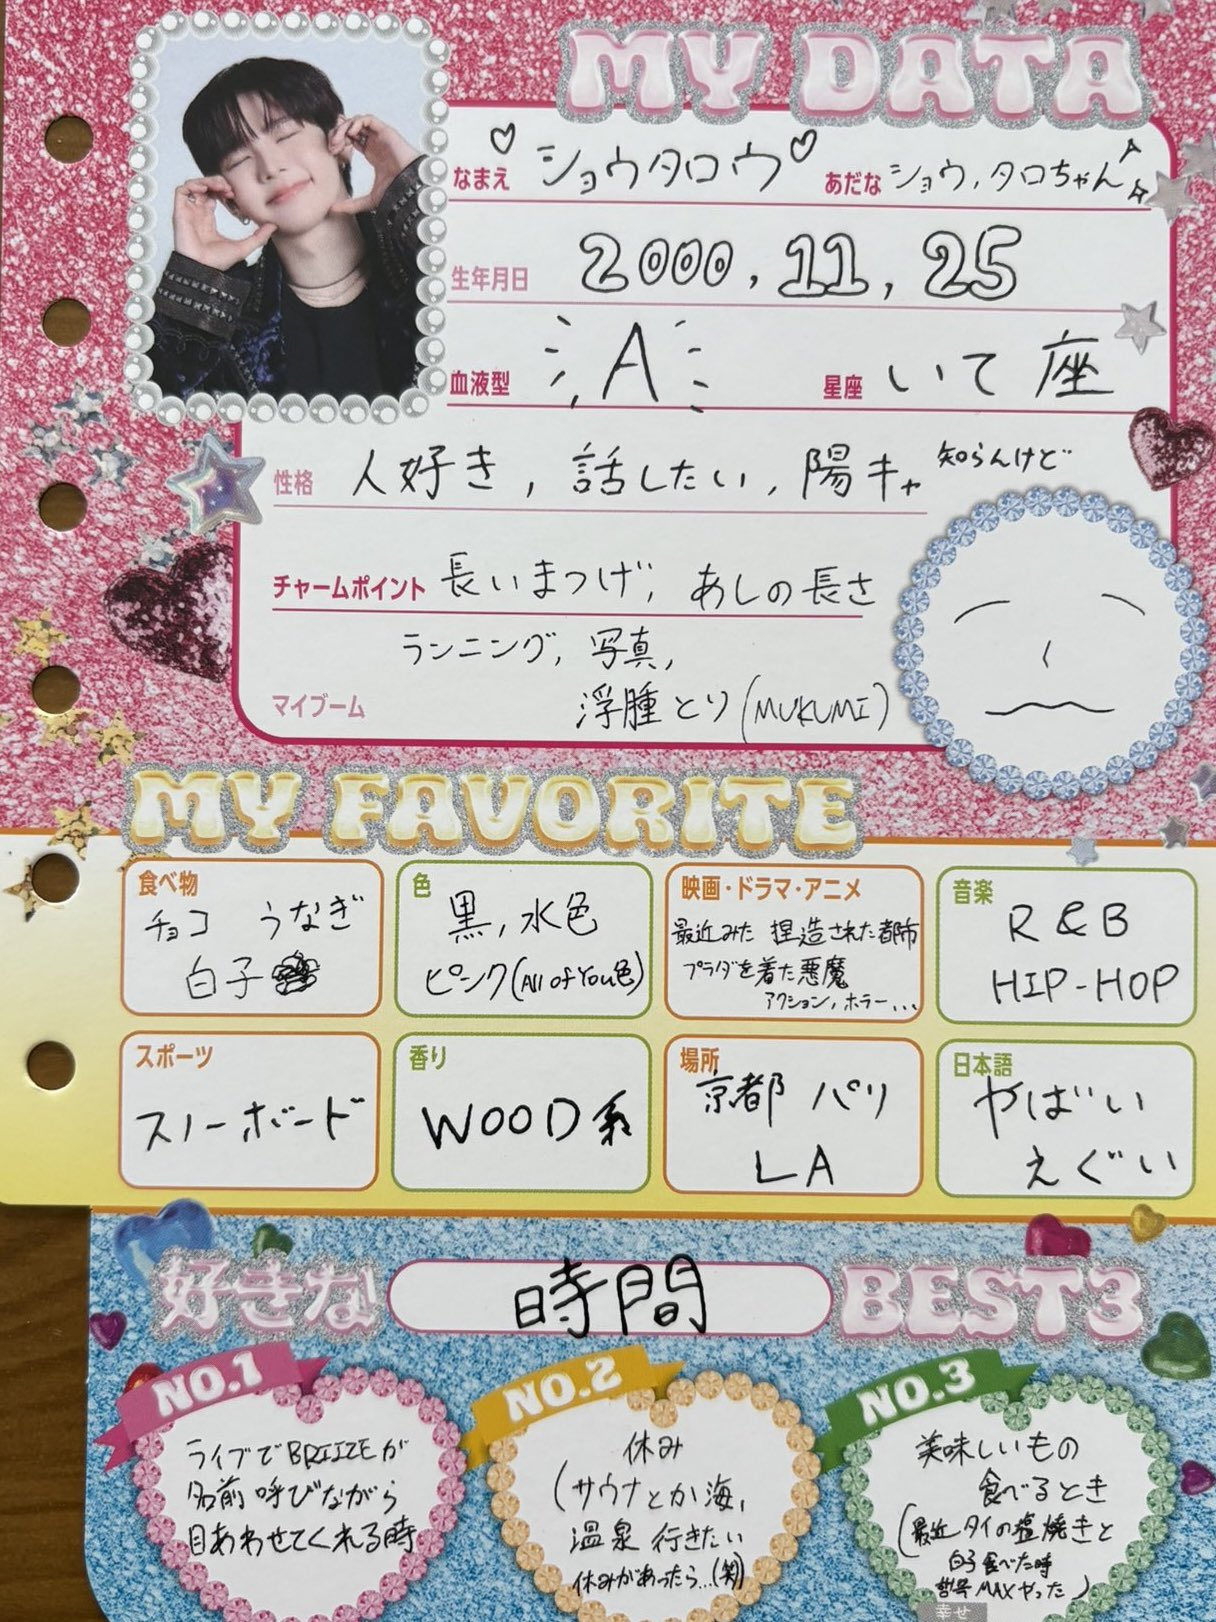 MY DATA
なまえ ♡ショウタロウ♡ あだな ショウ,タロちゃん
生年月日 2000.11.25
血液型 A 星座 いて座
性格 人好き,話したい,陽キャ 知らんけど
チャームポイント 長いまつげ,あしの長さ
ランニング,写真,
マイブーム 浮腫とり(MUKUMI)
MY FAVORITE
食べ物
チョコ うなぎ
白子
色
黒,水色
ピンク(All of You色)
映画・ドラマ・アニメ
最近みた 捏造された都市
プラダを着た悪魔
アクション,ホラー...
音楽
R&B
HIP-HOP
スポーツ
スノーボード
香り
WOOD系
場所
京都 パリ
LA
日本語
やばい
えぐい
好きな 時間 BEST3
NO.1
ライブでBRIIZEが
名前呼びながら
目あわせてくれる時
NO.2
休み
(サウナとか海,
温泉 行きたい
休みがあったら...(笑)
NO.3
美味しいもの
食べるとき
(最近タイの塩焼きと
白子食べた時
MAXやった)
幸せ